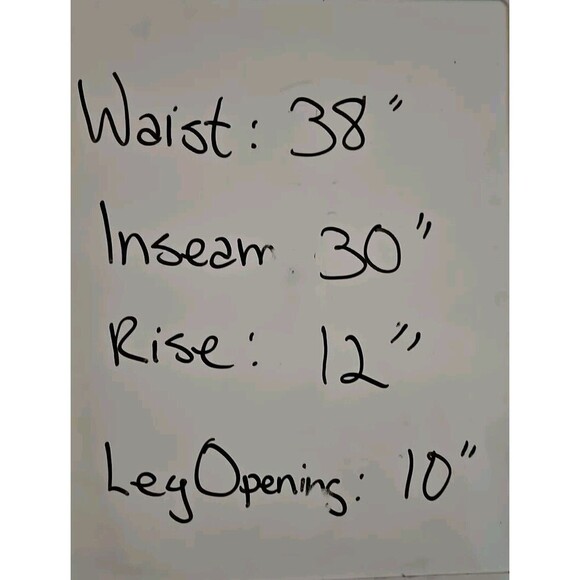 Waist: 38"
Inseam 30"
Rise: 12"
Leg Opening: 10"